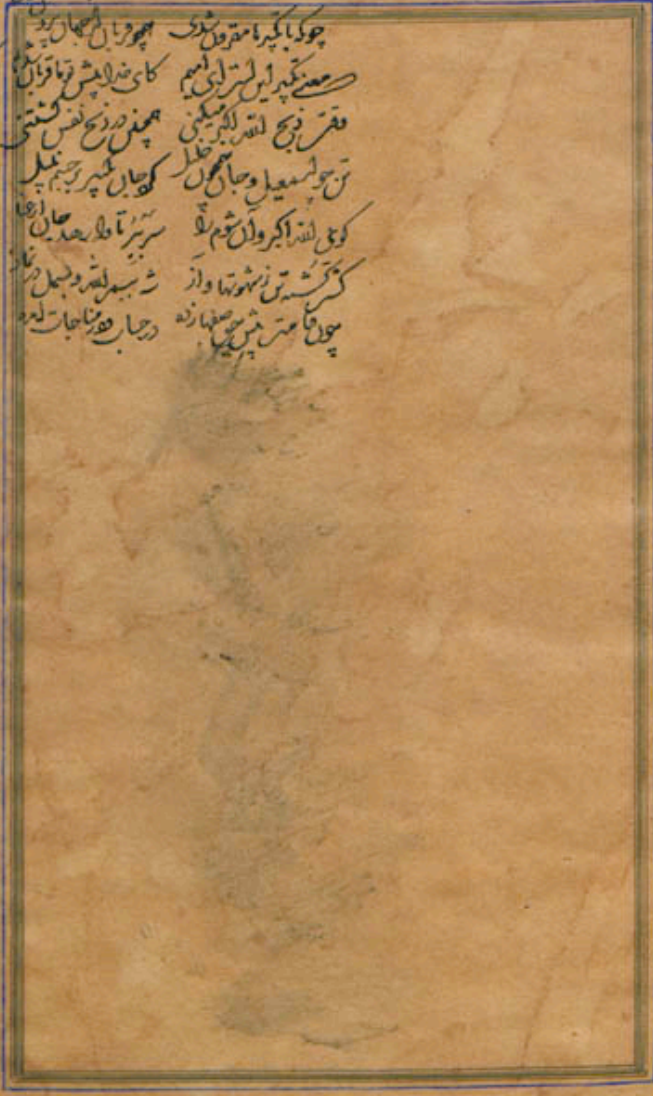 چونکه با تکبیرها مقرون شدی همچو قربان از جهان بیرون
معنی تکبیر این است ای امیم کای خدا پیش تو ما قربان شدیم
وقت ذبح الله اکبر میکنی همچنین در ذبح نفس کشتنی
تن چو اسمعیل و جان همچون خلیل کرد جان تکبیر بر جسم نبیل
گوی الله اکبر و آن شوم را سر ببر تا وارهد جان از
گشت کشته تن ز شهوتها و آز شد ببسم الله و بسمل در نماز
چون قیامت پیش حق صفها زده در حساب و در مناجات آمده